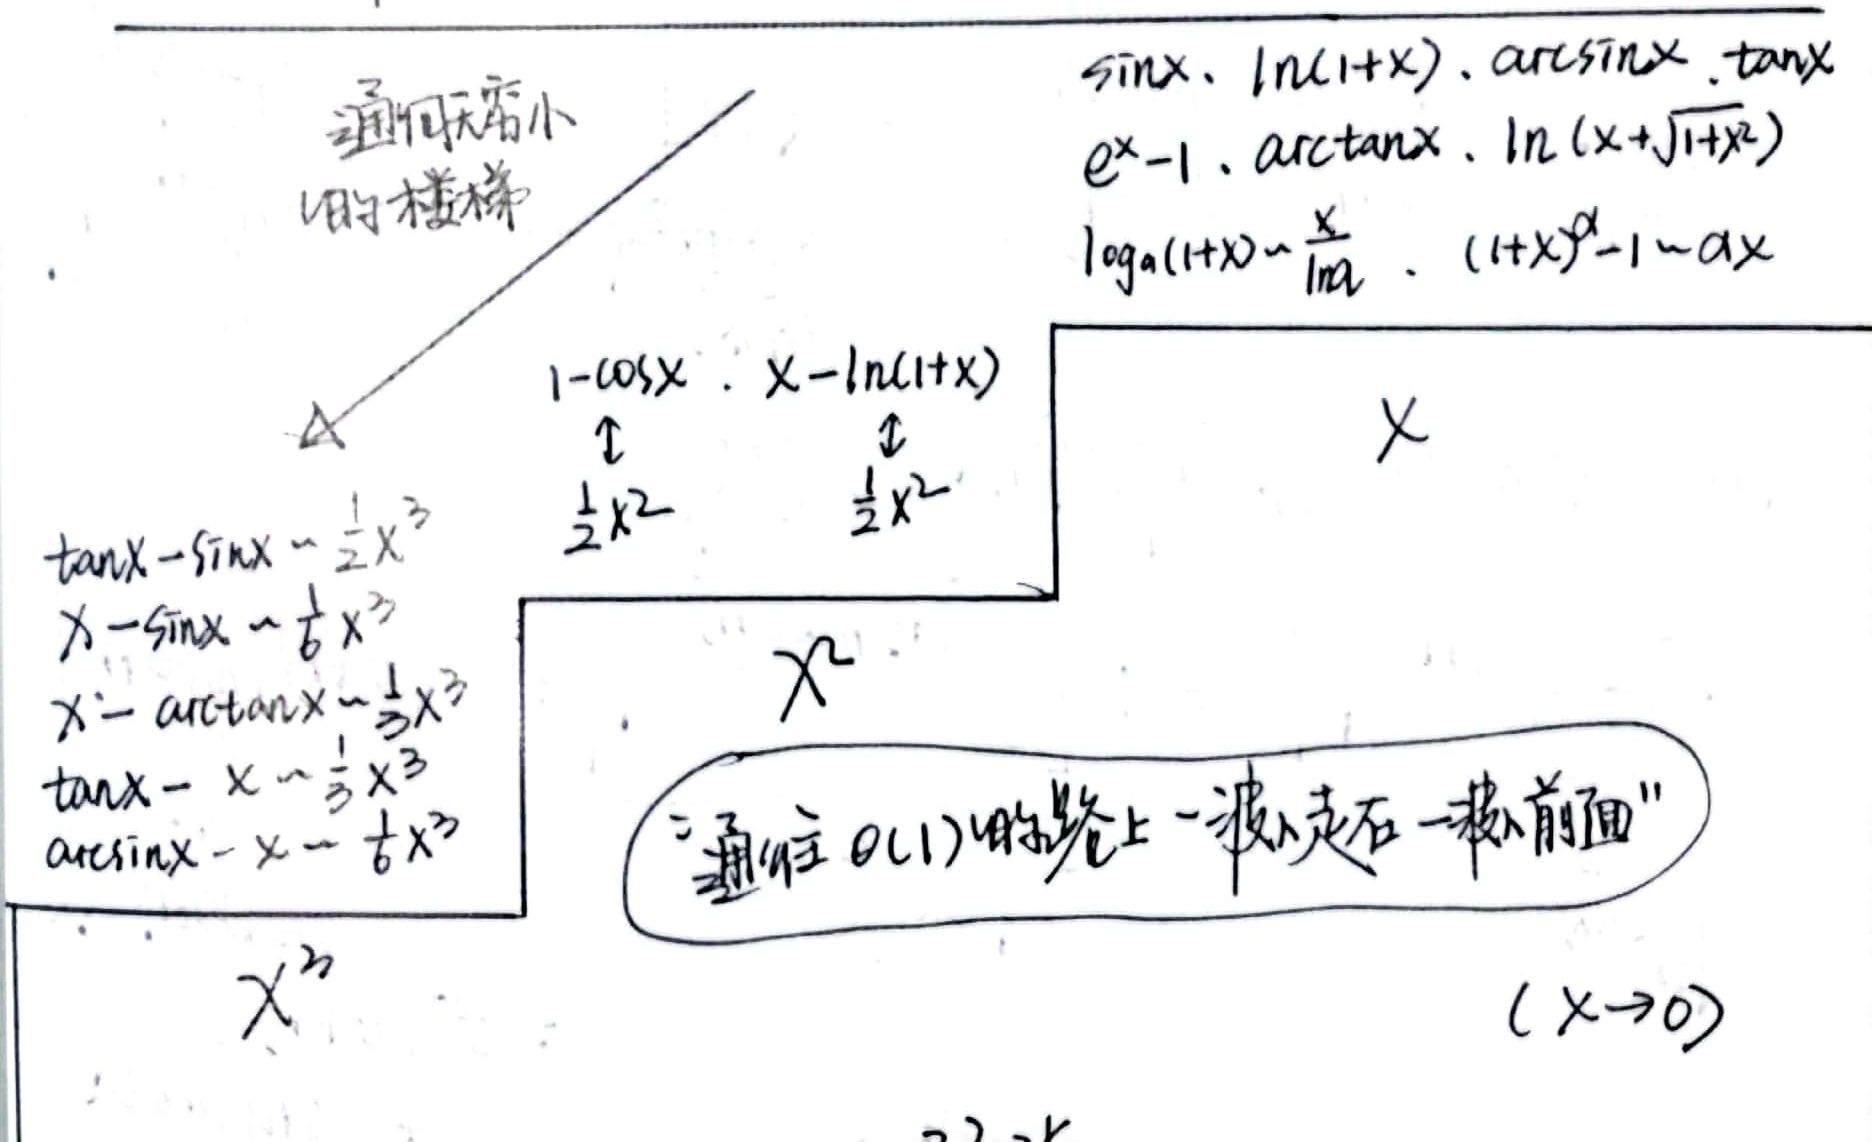 通向无穷小
的楼梯
sinx、ln(1+x)、arcsinx、tanx
e^x-1、arctanx、ln(x+√(1+x²))
logₐ(1+x)~x/lna、(1+x)^α-1~αx
1-cosx、x-ln(1+x)
↕ ↕
½x² ½x²
x
tanx-sinx~½x³
x-sinx~⅙x³
x-arctanx~⅓x³
tanx-x~⅓x³
arcsinx-x~⅙x³
x²
"通往o(1)的路上一波人走在一波人前面"
x³
(x→0)